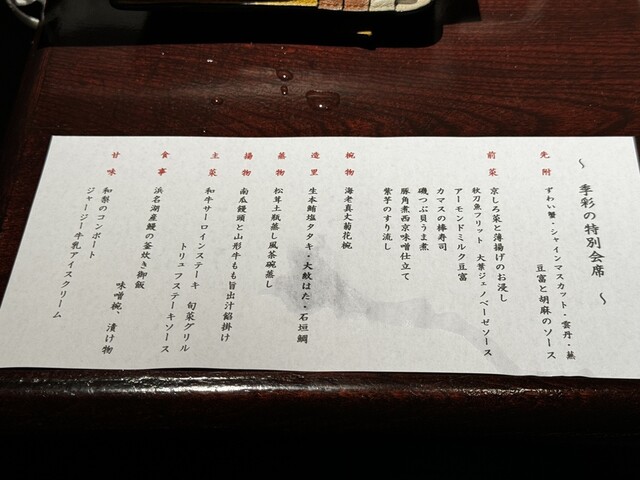 ～ 季彩の特別会席 ～
先附 ずわい蟹・シャインマスカット・雲丹・蕪
豆富と胡麻のソース
前菜 京しろ菜と薄揚げのお浸し
秋刀魚フリット 大葉ジェノベーゼソース
アーモンドミルク豆富
カマスの棒寿司
磯つぶ貝うま煮
豚角煮西京味噌仕立て
紫芋のすり流し
椀物 海老真丈菊花椀
造里 生本鮪塩タタキ・大紋はた・石垣鯛
蒸物 松茸土瓶蒸し風茶碗蒸し
揚物 南瓜饅頭と山形牛もも旨出汁餡掛け
主菜 和牛サーロインステーキ 旬菜グリル
トリュフステーキソース
食事 浜名湖産鰻の釜炊き御飯
味噌椀、漬け物
甘味 和梨のコンポート
ジャージー牛乳アイスクリーム